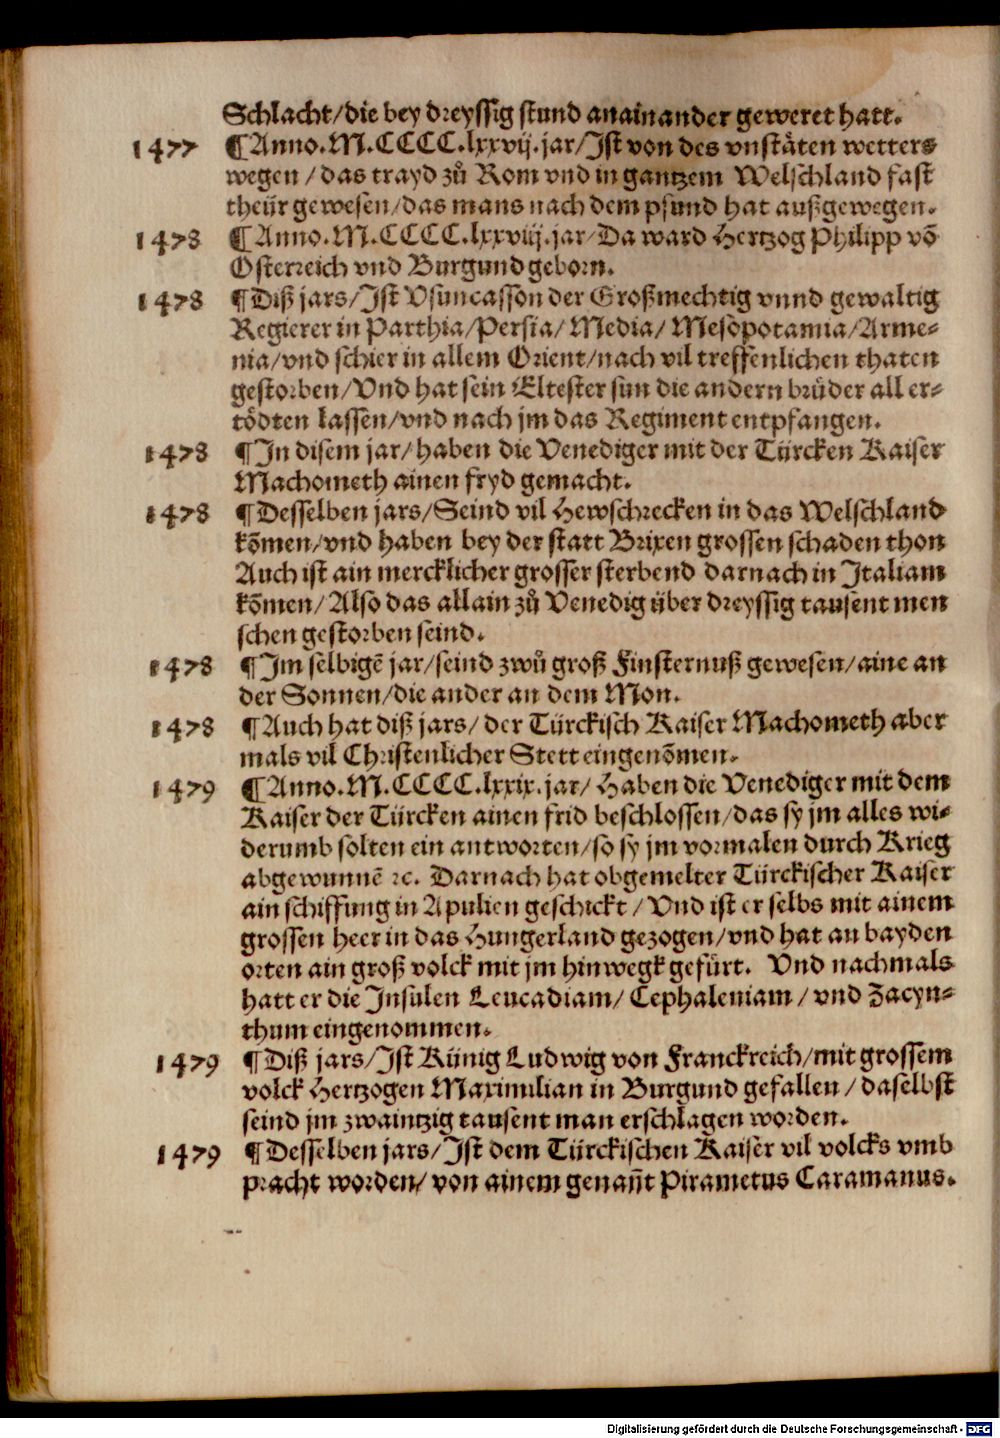 Schlacht/die bey dreyssig stund anainander geweret hatt.
1477 ¶Anno.M.CCCC.lxxvij.jar/Ist von des vnstäten wetters
wegen/das trayd zů Rom vnd in gantzem Welschland fast
theür gewesen/das mans nach dem pfund hat außgewegen.
1478 ¶Anno.M.CCCC.lxxviij.jar/Da ward Hertzog Philipp võ
Osterreich vnd Burgund geborn.
1478 ¶Diß jars/Ist Vsuncasson der Großmechtig vnnd gewaltig
Regierer in Parthia/Persia/Media/Mesopotamia/Arme-
nia/vnd schier in allem Orient/nach vil treffenlichen thaten
gestorben/Vnd hat sein Eltester sun die andern brüder all er-
tödten lassen/vnd nach jm das Regiment entpfangen.
1478 ¶In disem jar/haben die Venediger mit der Türcken Kaiser
Machometh ainen fryd gemacht.
1478 ¶Desselben jars/Seind vil Hewschrecken in das Welschland
kõmen/vnd haben bey der statt Brixen grossen schaden thon
Auch ist ain mercklicher grosser sterbend darnach in Italiam
kõmen/Also das allain zů Venedig über dreyssig tausent men
schen gestorben seind.
1478 ¶Im selbigẽ jar/seind zwů groß Finsternuß gewesen/aine an
der Sonnen/die ander an dem Mon.
1478 ¶Auch hat diß jars/der Türckisch Kaiser Machometh aber
mals vil Christenlicher Stett eingenõmen.
1479 ¶Anno.M.CCCC.lxxix.jar/Haben die Venediger mit dem
Kaiser der Türcken ainen frid beschlossen/das sy jm alles wi-
derumb solten ein antworten/so sy jm vormalen durch Krieg
abgewunnẽ ꝛc. Darnach hat obgemelter Türckischer Kaiser
ain schiffung in Apulien geschickt/Vnd ist er selbs mit ainem
grossen heer in das Hungerland gezogen/vnd hat an bayden
orten ain groß volck mit jm hinwegk gefürt. Vnd nachmals
hatt er die Insulen Leucadiam/Cephaleniam/vnd Zacyn-
thum eingenommen.
1479 ¶Diß jars/Ist Künig Ludwig von Franckreich/mit grossem
volck Hertzogen Maximilian in Burgund gefallen/daselbst
seind jm zwaintzig tausent man erschlagen worden.
1479 ¶Desselben jars/Ist dem Türckischen Kaiser vil volcks vmb
pracht worden/von ainem genañt Pirametus Caramanus.
Digitalisierung gefördert durch die Deutsche Forschungsgemeinschaft - DFG